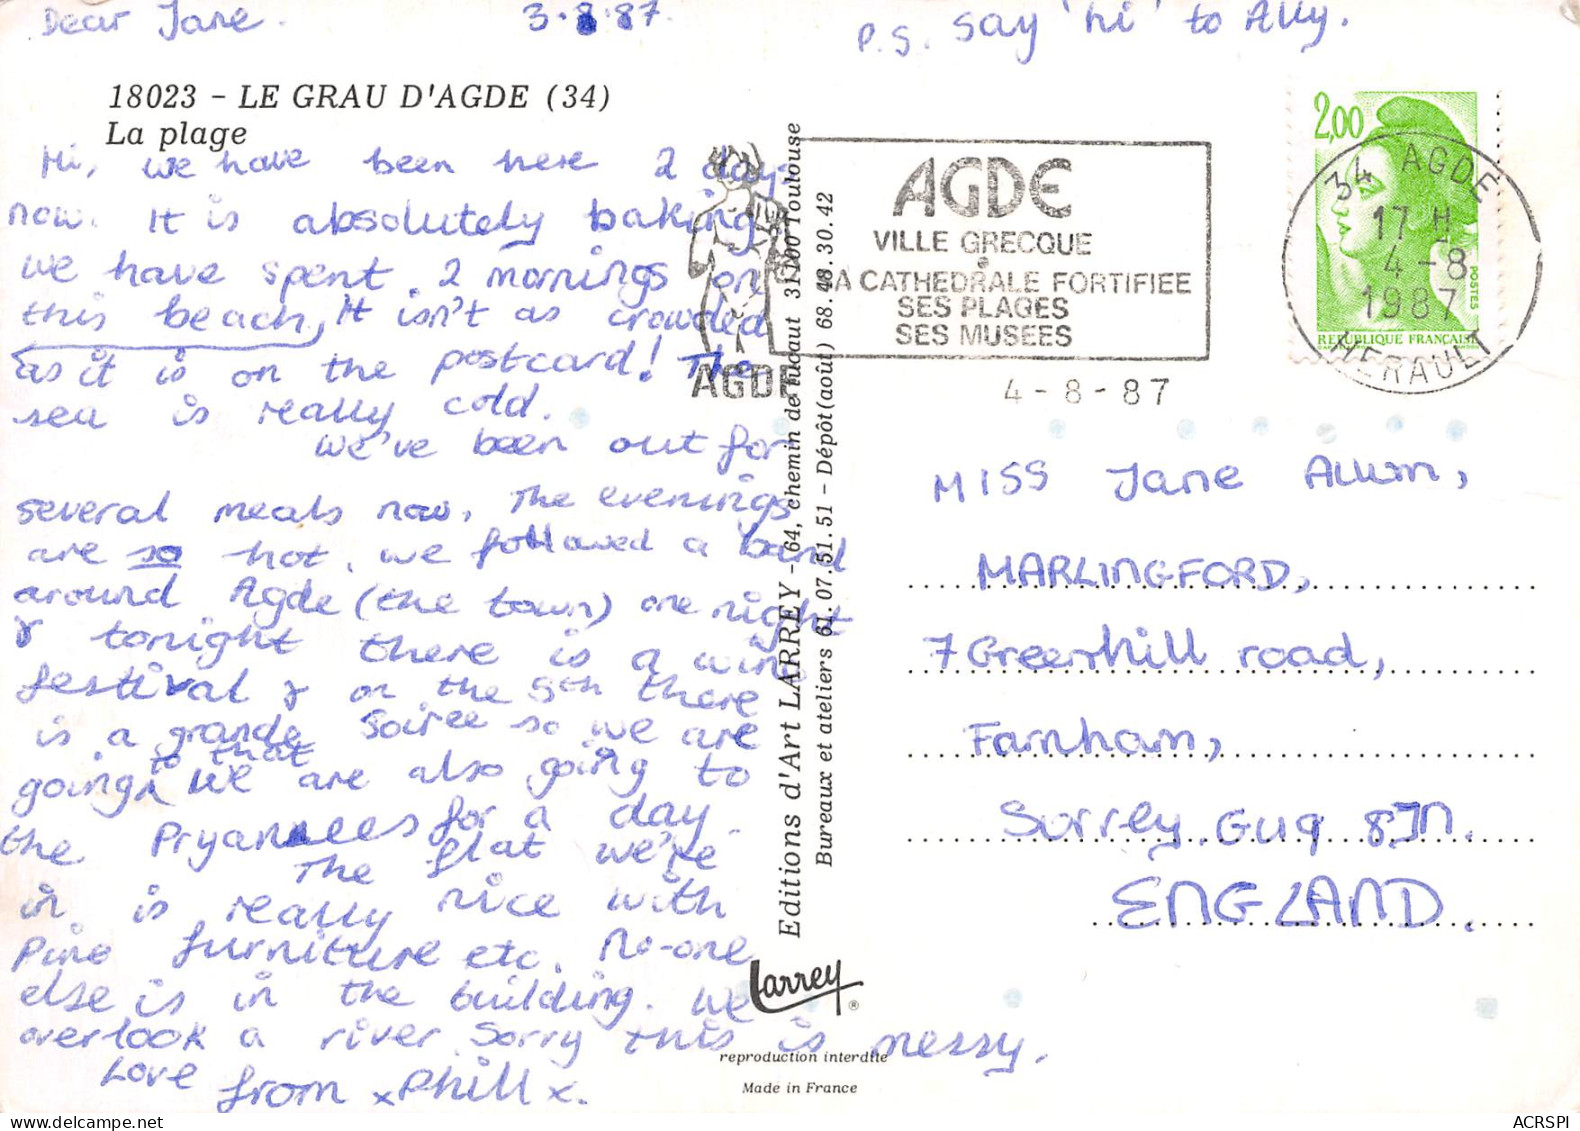 Dear Jane. 3.8.87.
P.S. Say 'hi' to Ally.
18023 - LE GRAU D'AGDE (34)
La plage
Hi, we have been here 2 days
now. It is absolutely baking
we have spent 2 mornings on
this beach, It isn't as crowded
as it is on the postcard! The
sea is really cold.
We've been out for
several meals now. The evenings
are so hot. we followed a band
around Agde (the town) one night
& tonight there is a wine
festival & on the 5th there
is a grande Soiree so we are
going to that. We are also going to
the Pryanees for a day.
The flat we're
in is really nice with
Pine furniture etc. No-one
else is in the building. We
overlook a river. Sorry this is messy.
Love from x Phill x.
Editions d'Art LARREY - 64, chemin de Tucaut 31100 Toulouse
Bureaux et ateliers 61.07.51.51 - Dépôt (août) 68.48.30.42
Larrey ®
reproduction interdite
Made in France
AGDE
AGDE
VILLE GRECQUE
SA CATHEDRALE FORTIFIEE
SES PLAGES
SES MUSEES
4-8-87
2,00
POSTES
REPUBLIQUE FRANÇAISE
34 AGDE
17 H
4-8
1987
HERAULT
MISS Jane Allum,
MARLINGFORD,
7 Greenhill road,
Farnham,
Surrey. GU9 8JN.
ENGLAND.
ACRSPI